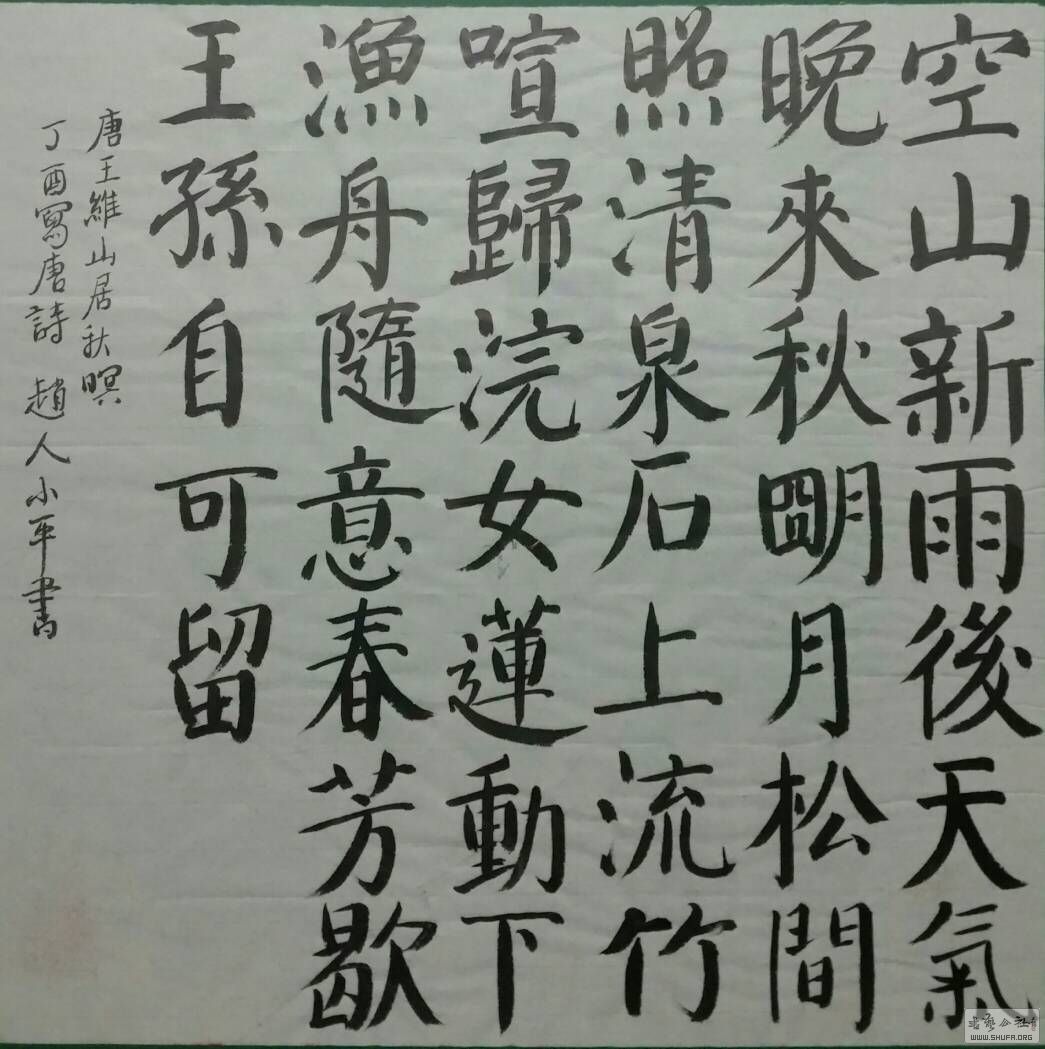 空山新雨後天氣
晚來秋朙月松間
照清泉石上流竹
喧歸浣女蓮動下
漁舟隨意春芳歇
王孫自可留
唐王維山居秋暝
丁酉寫唐詩 趙人小平書
书艺公社
WWW.SHUFA.ORG